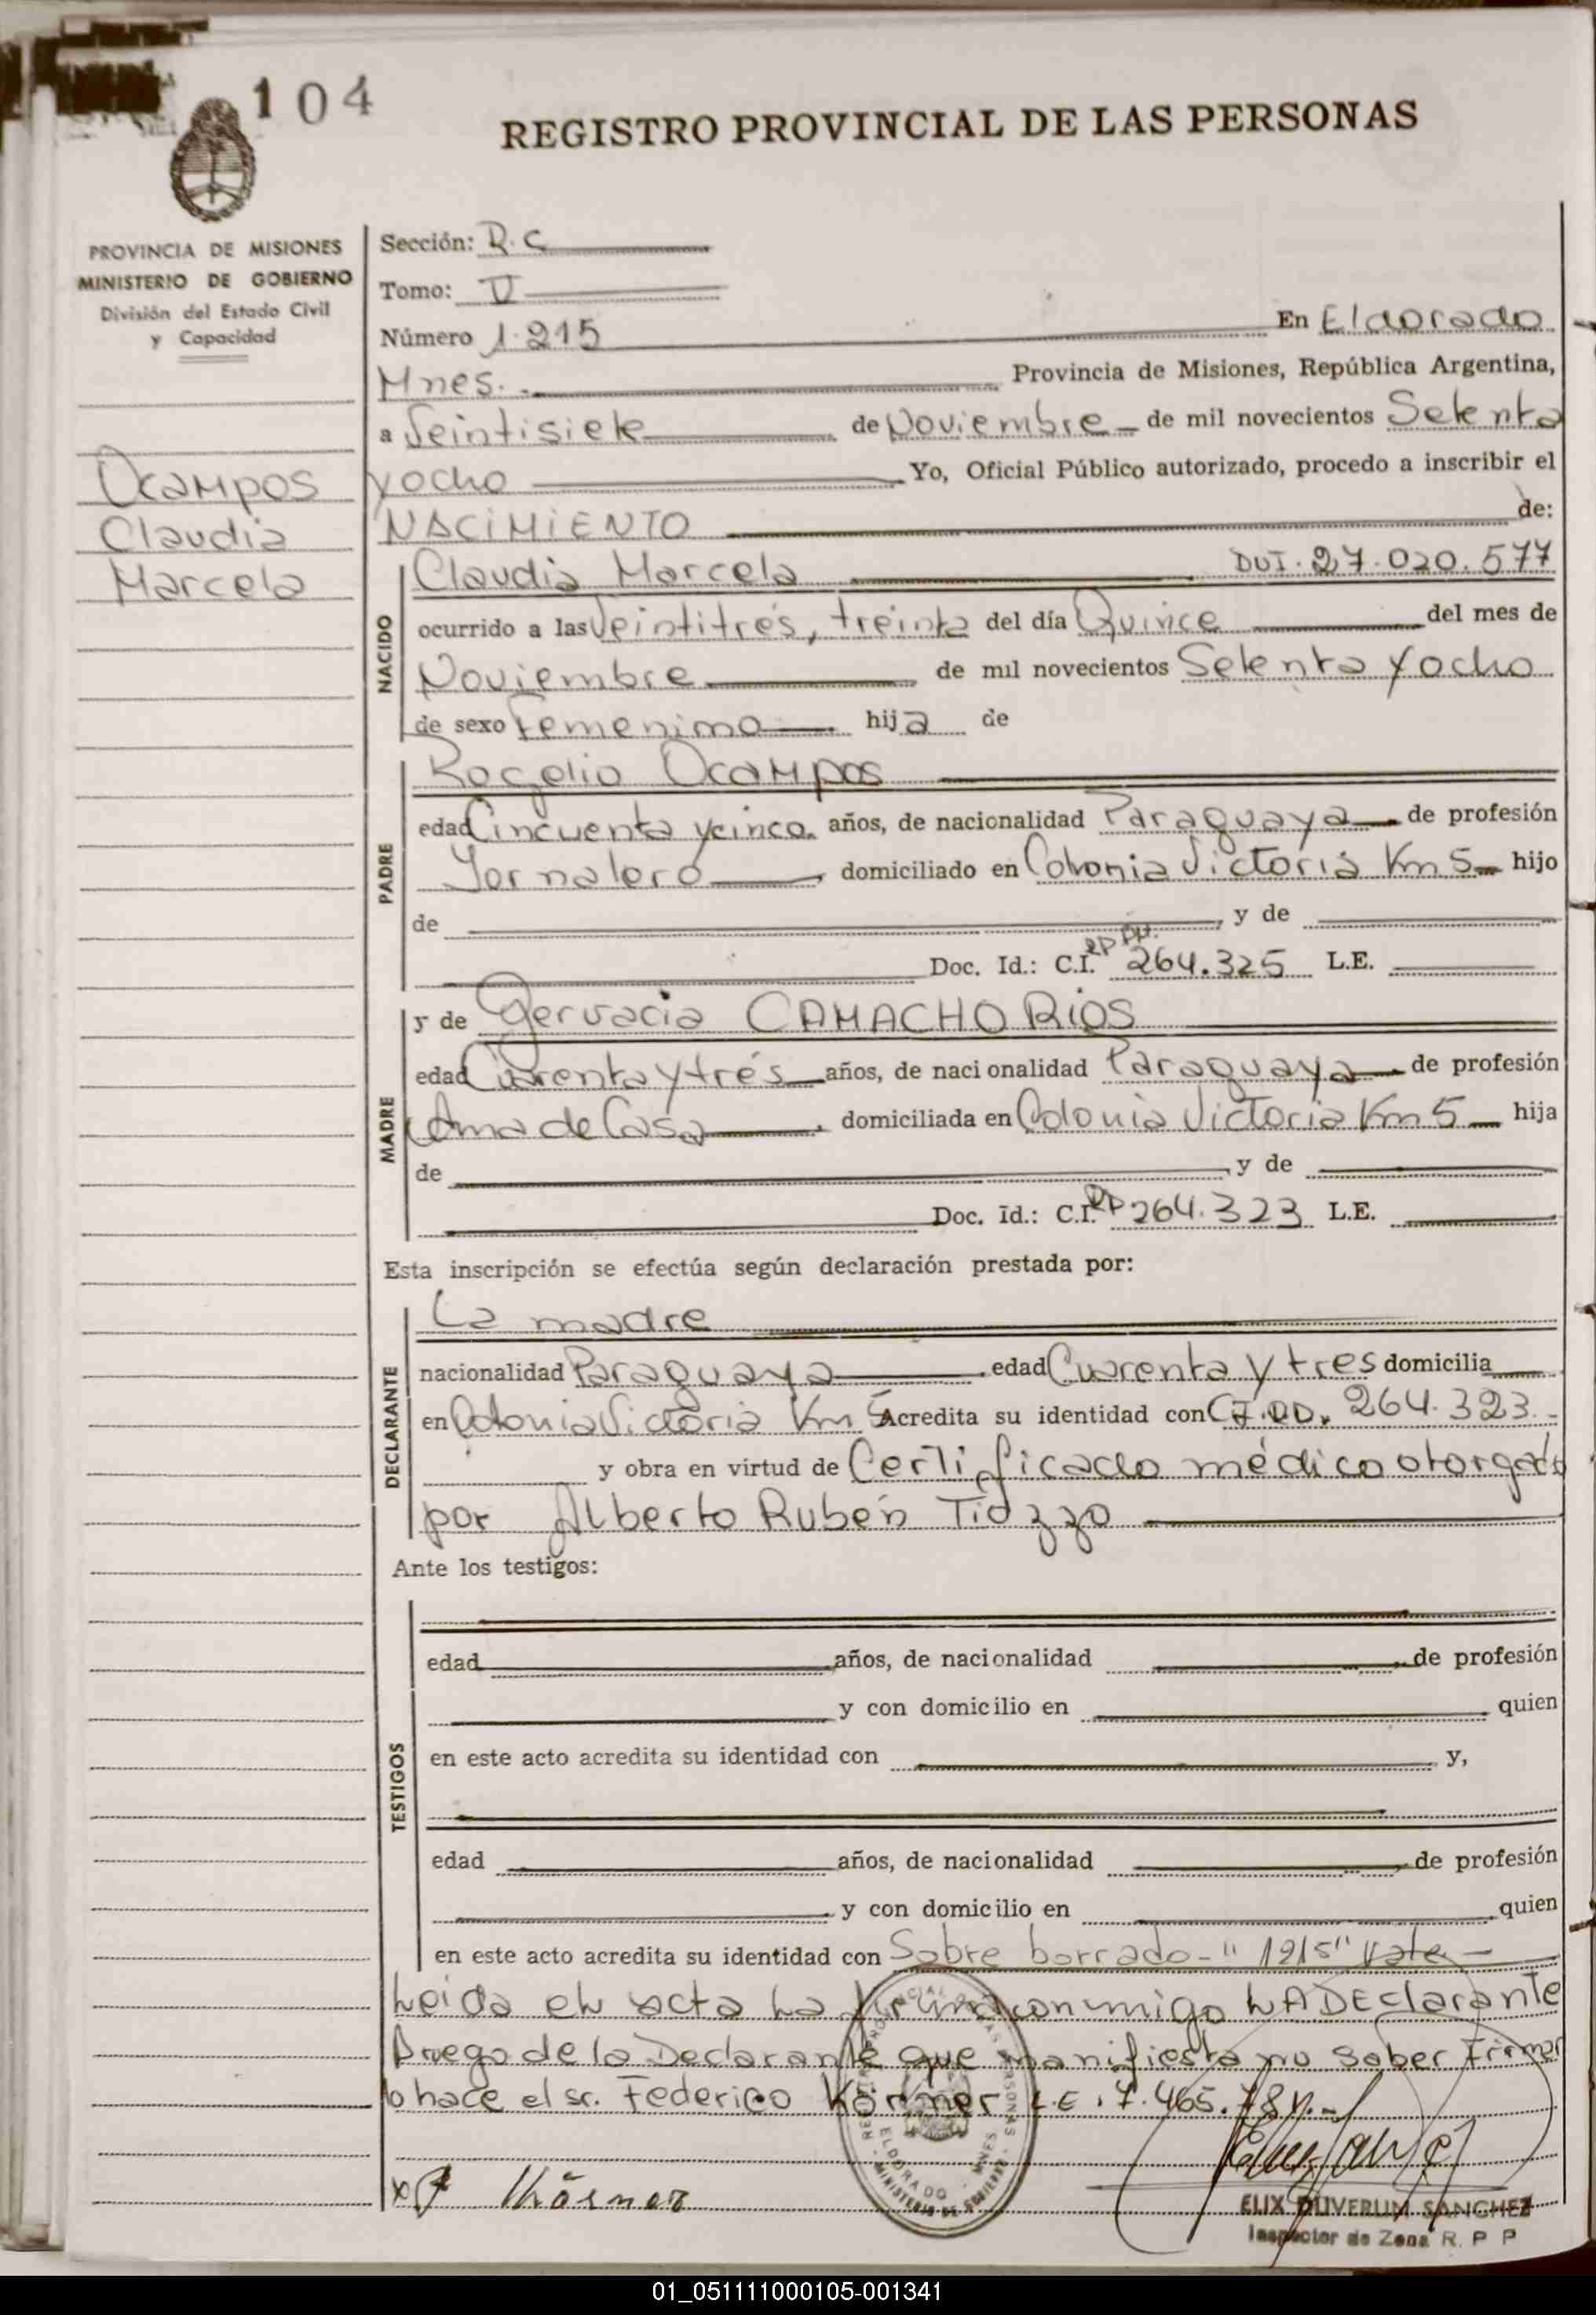 104
REGISTRO PROVINCIAL DE LAS PERSONAS
PROVINCIA DE MISIONES
MINISTERIO DE GOBIERNO
División del Estado Civil
y Capacidad
Ocampos
Claudia
Marcela
Sección: R.C
Tomo: V
Número 1.215 En Eldorado
Mnes. Provincia de Misiones, República Argentina,
a Veintisiete de Noviembre de mil novecientos Setenta
y ocho Yo, Oficial Público autorizado, procedo a inscribir el
NACIMIENTO de:
NACIDO
Claudia Marcela DUI. 27.020.577
ocurrido a las Veintitrés, treinta del día Quince del mes de
Noviembre de mil novecientos Setenta y ocho
de sexo Femenino hija de
PADRE
Rogelio Ocampos
edad Cincuenta y cinco años, de nacionalidad Paraguaya de profesión
Jornalero, domiciliado en Colonia Victoria Km 5 hijo
de , y de
Doc. Id.: C.I. 264.325 L.E.
MADRE
y de Gervacia CAMACHO RIOS
edad Cuarenta y trés años, de nacionalidad Paraguaya de profesión
Ama de Casa, domiciliada en Colonia Victoria Km 5 hija
de , y de
Doc. Id.: C.I. RP 264.323 L.E.
Esta inscripción se efectúa según declaración prestada por:
DECLARANTE
La madre
nacionalidad Paraguaya edad Cuarenta y tres domicilia
en Colonia Victoria Km 5 Acredita su identidad con 264.323.-
y obra en virtud de Certificado médico otorgado
por Alberto Rubén Tiozzo
Ante los testigos:
TESTIGOS
edad años, de nacionalidad de profesión
y con domicilio en quien
en este acto acredita su identidad con y,
edad años, de nacionalidad de profesión
y con domicilio en quien
en este acto acredita su identidad con Sobre borrado-"1215" Vale-
Leida el acta La firma conmigo LA DEclarante
A ruego de la Declarante que manifiesta no saber Firmar
lo hace el sr. Federico Körner L.E. 7.465.
Körner
ELDORADO - MNES
MINISTERIO DE GOBIERNO
SANCHEZ
Inspector de Zona R. P P
01_051111000105-001341